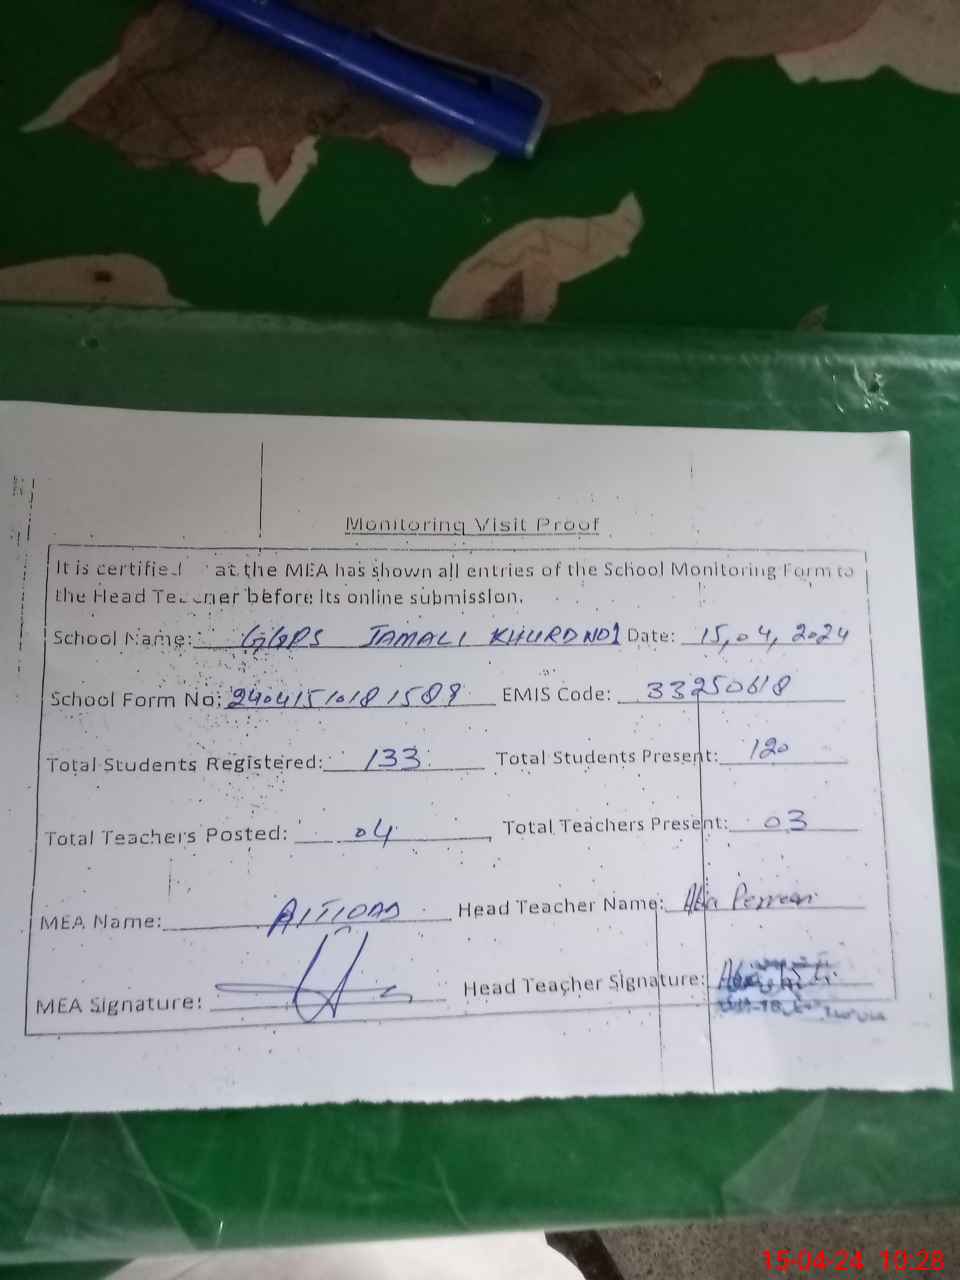 Monitoring Visit Proof
It is certified at the MEA has shown all entries of the School Monitoring Form to
the Head Teacher before its online submission.
School Name: GGPS JAMALI KHURD NO1 Date: 15,04,2024
School Form No: 24041510181589 EMIS Code: 33250618
Total Students Registered: 133 Total Students Present: 120
Total Teachers Posted: 04 Total Teachers Present: 03
MEA Name: Head Teacher Name:
MEA Signature: Head Teacher Signature:
15-04-24 10:28